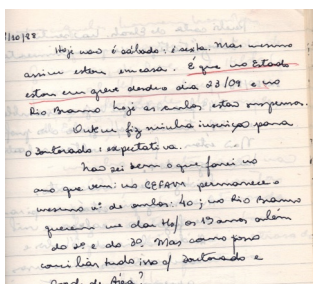 /10/88
Hoje não é sábado: é sexta. Mas mesmo
assim estou em casa. É que no Estado
estou em greve desde o dia 23/09 e no
Rio Branco hoje as aulas estão suspensas.
Ontem fiz minha inscrição para
o Doutorado: expectativa.
Não sei bem o que farei no
ano que vem: no CEFAM permanece o
mesmo nº de aulas: 40; no Rio Branco
querem me dar tb/ os 1ºs anos além
do 2º e do 3º. Mas como posso
conciliar tudo isso c/ Doutorado e
de Área?